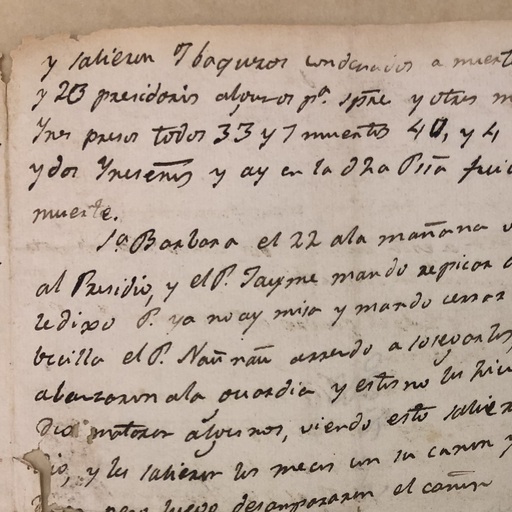 y salieron 7 baqueros condenados a muert
y 23 presidarios algunos pª. spre y otros m
Ynes presos todos 33 y 7 muertos 40, y 4
y dos Ynesenˢ y ay en la dha Pʳⁱᵃ
muerte.
Sᵗᵃ Barbara el 22 a la mañana
al Presidio, y el P. Jayme mando repicar
le dixo P. ya no ay misa y mando cerrar
el P. a sosegarlos
abanzaron a la guardia y estos no les hici
Dia mataron algunos, viendo esto salier
dio, y les salieron los mecos con su canon y
pero luego desampararon el cañon